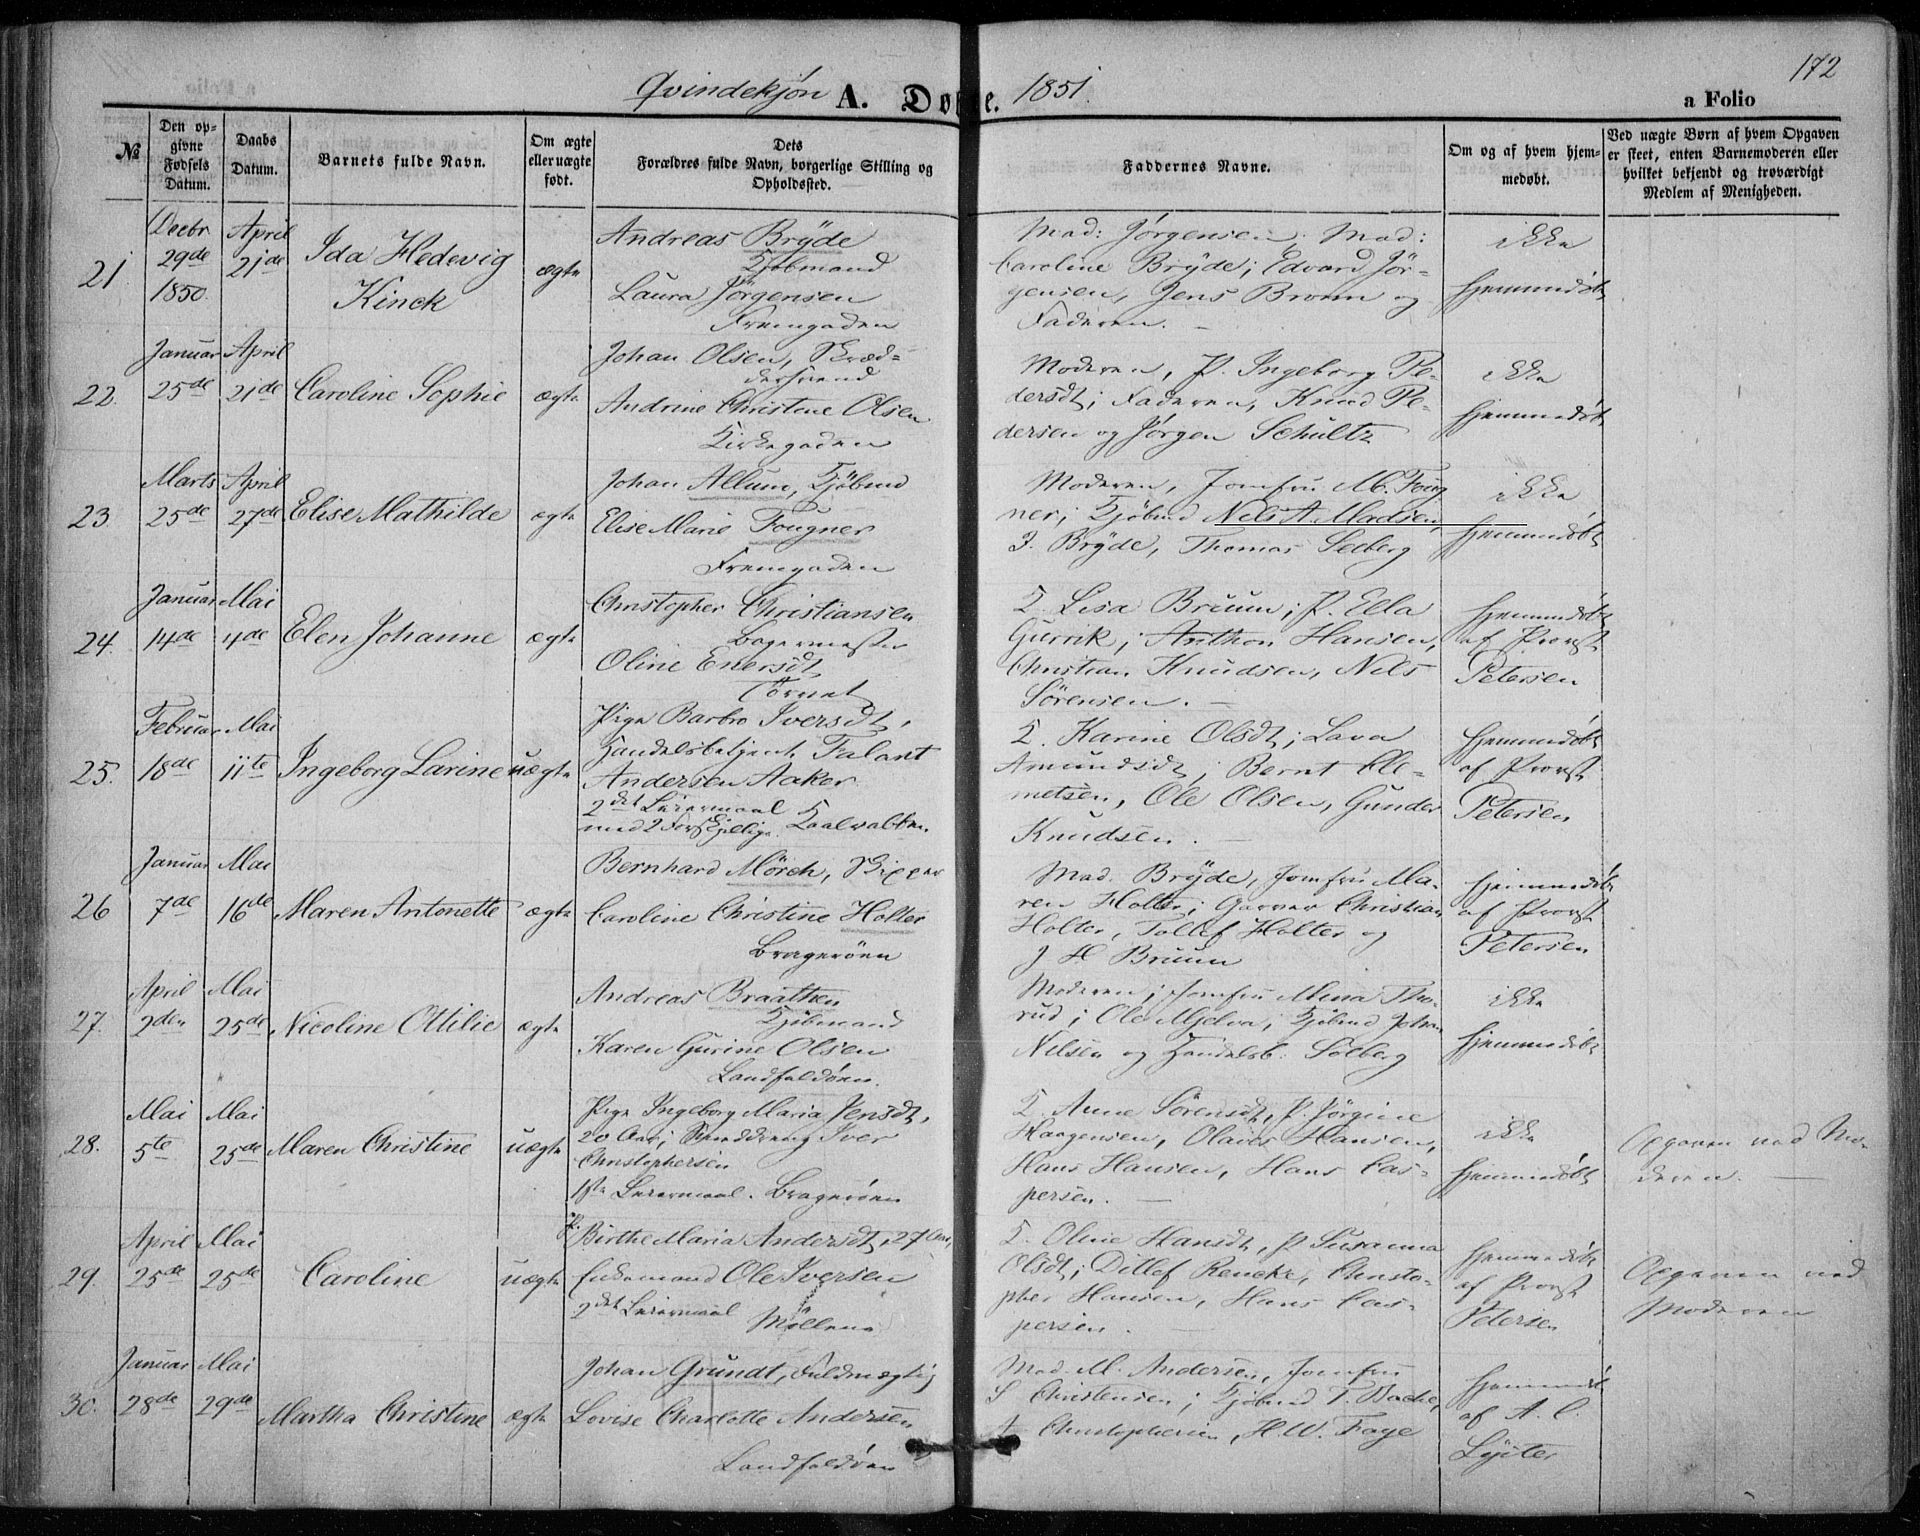 172
Qvindekjön A. Dø e. 1851.
a Folio
No
Den op-
givne
Fødsels
Datum.
Daabs
Datum.
Barnets fulde Navn.
Om ægte
eller uægte
født.
Dets
Forældres fulde Navn, borgerlige Stilling og
Opholdssted.
Faddernes Navne.
Om og af hvem hjem-
medøbt.
Ved uægte Børn af hvem Opgaven
er skeet, enten Barnemoderen eller
hvilket bekjendt og troværdigt
Medlem af Menigheden.
21.
Decbr
29de
1850.
April
21de
Ida Hedevig
Kinck
ægte
Andreas Bryde
Kjöbmand
Laura Jörgensen
Fremgaden
Mad: Jörgensen, Mad:
Caroline Bryde; Edvard Jör-
gensen, Jens Bruun og
Faderen. -
ikke
hjemmedöbt
22.
Januar
25de
April
21de
Caroline Sophie
ægte
Johan Olsen, Skræd-
dersvend
Andrine Christine Olsen
Kirkegaden
Moderen, P. Ingeborg Pe-
dersdt; Faderen, Knud Pe-
dersen og Jörgen Schultz
ikke
hjemmedöbt
23
Marts
25de
April
27de
Elise Mathilde
ægte
Johan Allum, Kjöbmd
Elise Marie Fougner
Fremgaden
Moderen, Jomfru M. Foug-
ner; Kjöbmd Nels A Madsen,
F. Bryde, Thomas Seeberg
ikke
hjemmedöbt
24.
Januar
14de
Mai
4de
Elen Johanne
ægte
Christopher Christiansen
Bagermester
Oline Enersdt
Törnet
K. Lisa Bruun; P. Ella
Gurrik; Anthon Hansen,
Christian Knudsen, Nels
Sörensen. -
hjemmedöbt
af Provst
Petersen
25.
Februar
18de
Mai
11te
Ingeborg Larine
uægte
Pige Barbro Iversdt,
Handelsbetjent Falant
Andersen Aaker
2det Leiermaal
med 2 Forskjellige. Kaalvabben
K. Karine Olsdt; Lava
Amundsdt; Bernt Cle-
metsen, Ole Olsen, Gunder
Knudsen. -
hjemmedöbt
af Provst
Petersen
26
Januar
7de
Mai
16de
Maren Antonette
ægte
Bernhard Mörch, Skipper
Caroline Christine Holter
Bragerøen
Mad. Bryde, Jomfru Ma-
ren Holter; Garver Christian
Holter, Tollef Holter og
J H Bruun
hjemmedöbt
af Provst
Petersen
27.
April
2den
Mai
25de
Nicoline Ottilie
ægte
Andreas Braathen
Kjöbmand
Karen Gurine Olsen
Landfaldøen.
Moderen; Jomfru Mina Tho-
rud; Ole Mjelva; Kjöbmd Johan
Nelsen og Handelsb: Solberg
ikke
hjemmedöbt
28.
Mai
5te
Mai
25de
Maren Christine
uægte
Pige Ingeborg Maria Jensdt,
20 Aar; Smeddreng Iver
Christophersen
1ste Leiermaal. Bragerøen
K. Anne Sörensdt, P. Jörgine
Haagensen, Olaves Hansen,
Hans Hansen, Hans Cas-
persen. -
ikke
hjemmedöbt
Opgaven ved Mo-
deren. -
29.
April
25de
Mai
25de
Caroline
uægte
P. Birthe Maria Andersdt, 27 Aar,
Enkemand Ole Iversen
2det Leiermaal
Möllens
K. Oline Hansdt, P Susanna
Olsdt; Ditlef Rencke, Christo-
pher Hansen, Hans Cas-
persen. -
hjemmedöbt
af Provst
Petersen
Opgaven ved
Moderen
30.
Januar
28de
Mai
29de
Martha Christine
ægte
Johan Grundt, Fuldmægtig
Lovise Charlotte Andersen
Landfaldøen
Mad. M. Andersen, Jomfru
S Christensen; Kjöbmd T. Bache,
A Christophersen, H.W. Faye
hjemmedöbt
af A. C.